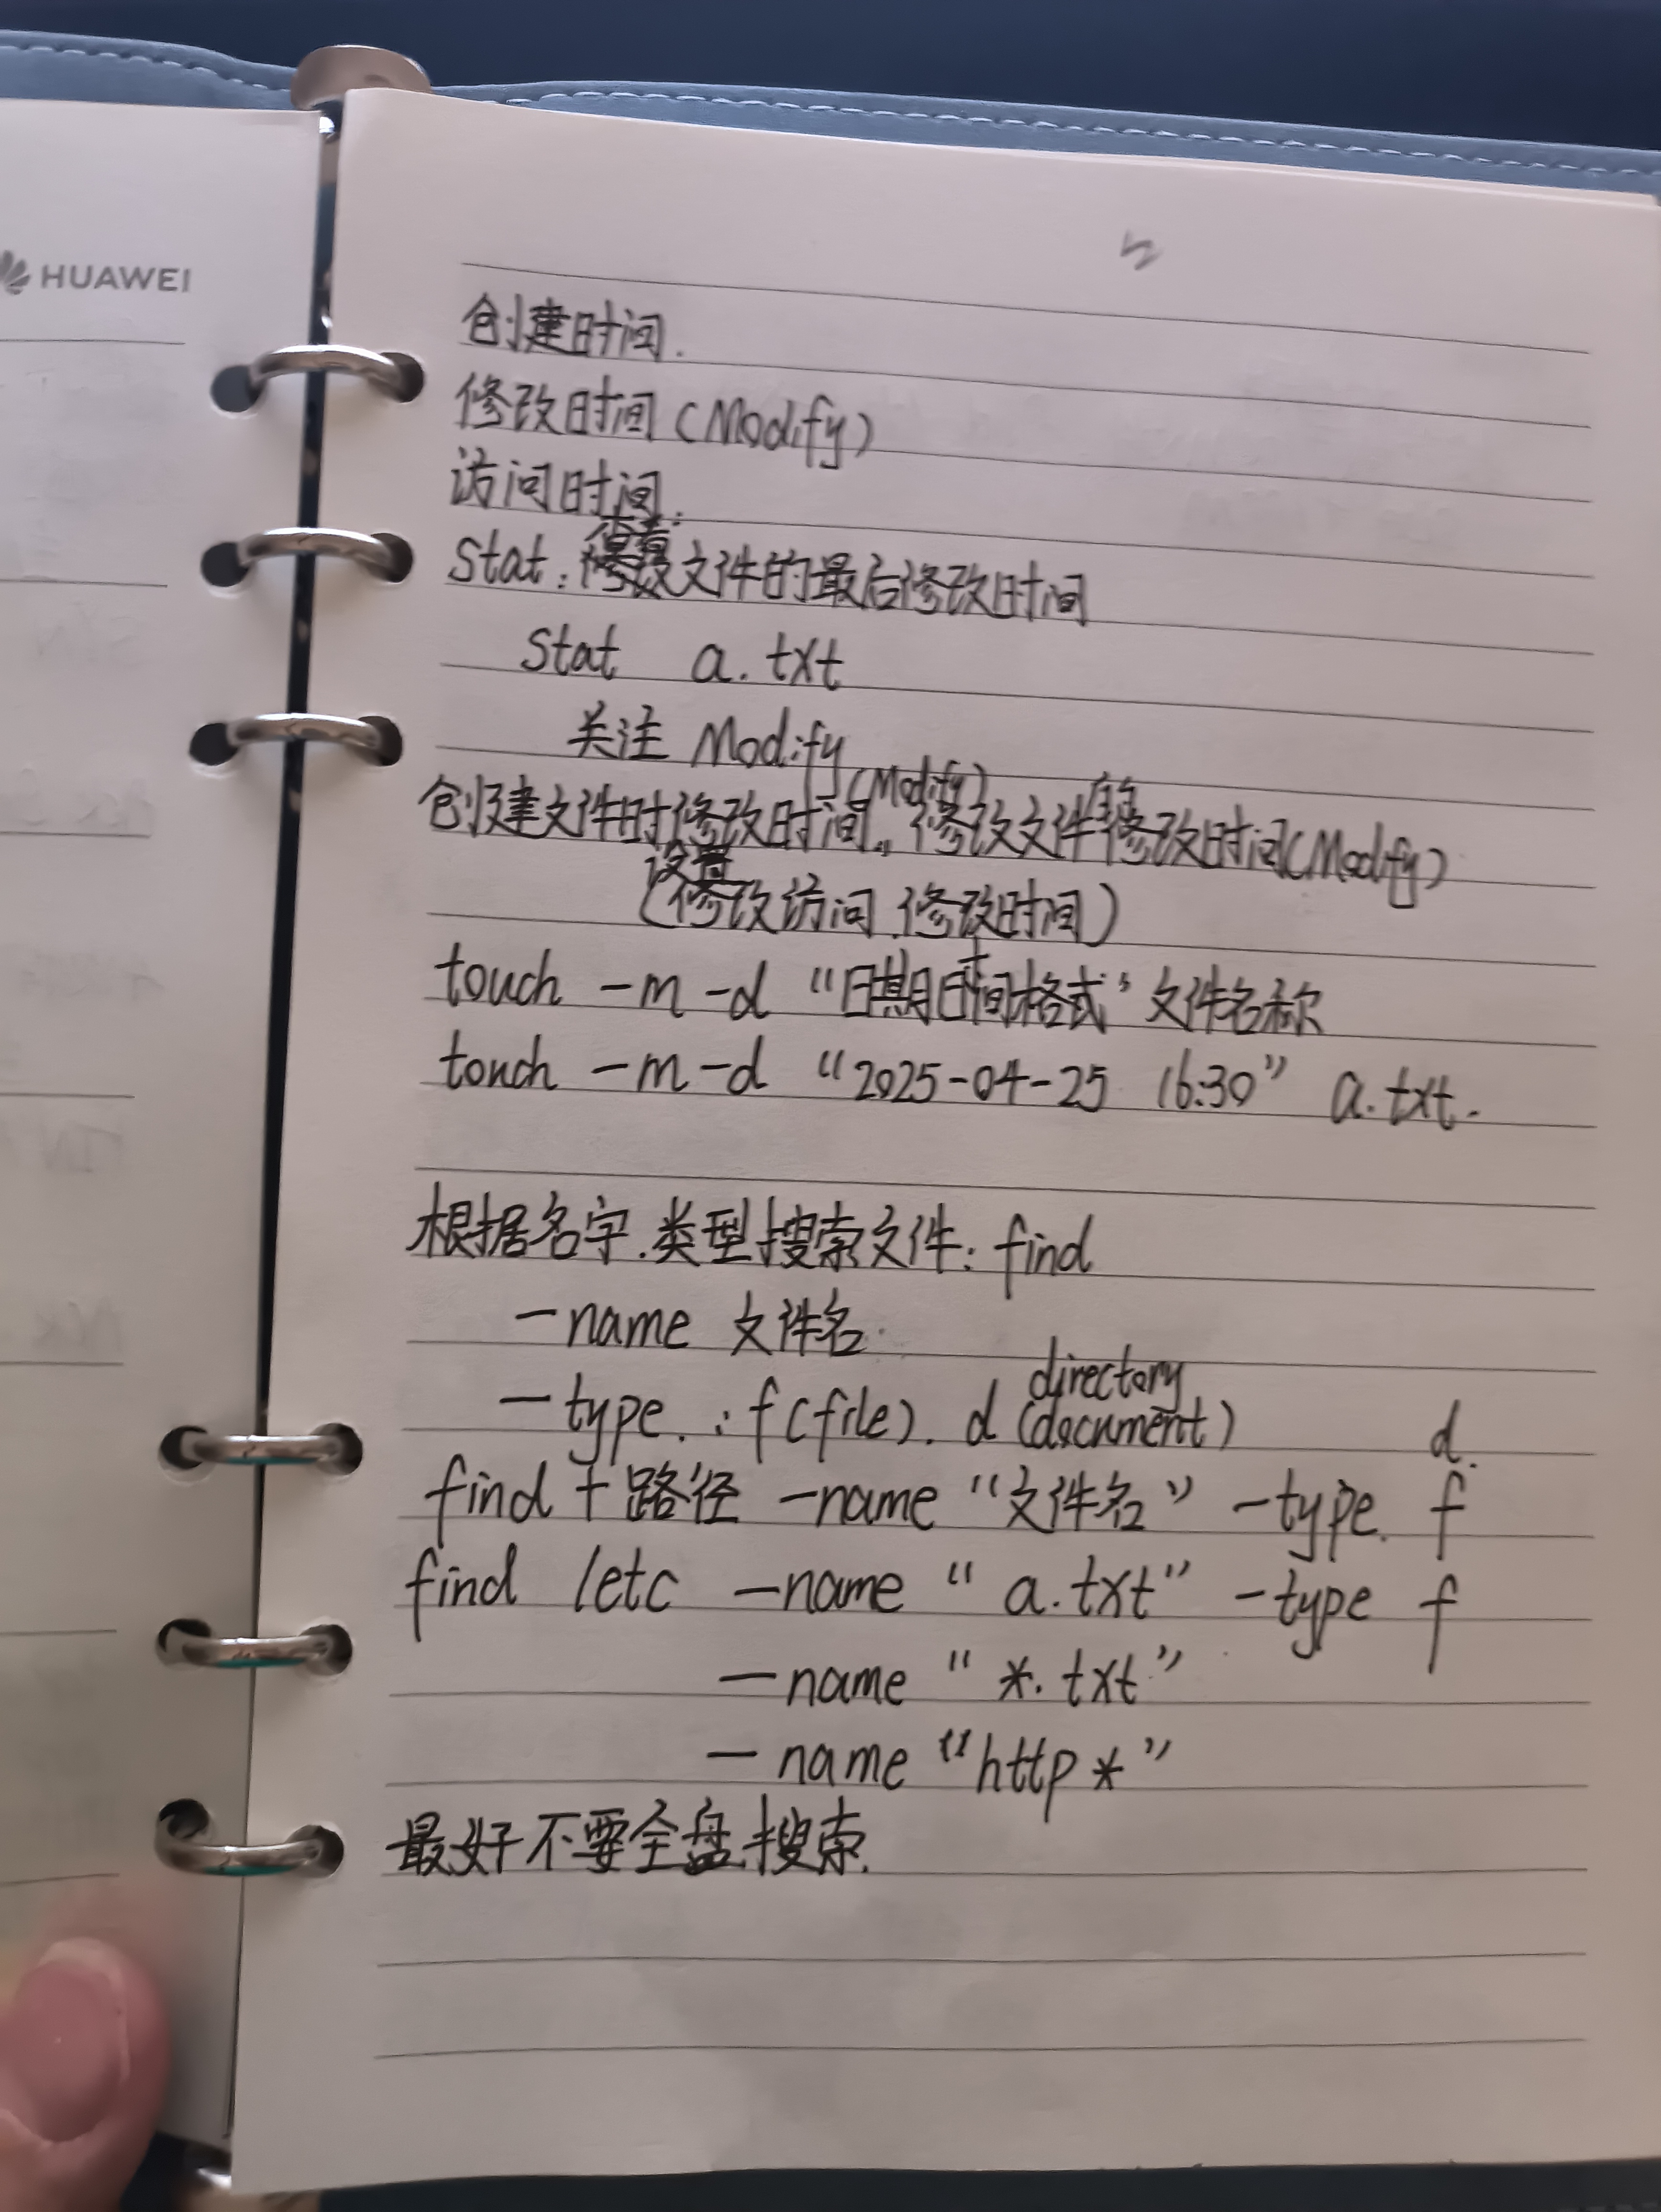 HUAWEI
5
创建时间.
修改时间(Modify)
访问时间.
Stat: 查看文件的最后修改时间
Stat a.txt
关注 Modify
创建文件时修改时间(Modify), 修改文件修改时间(Modify)
设置
(修改访问.修改时间)
touch -m -d “日期时间格式” 文件名称
touch -m -d “2025-04-25 16:30” a.txt.
根据名字.类型搜索文件: find
-name 文件名.
directory
-type. : f(file). d(document)
d.
find + 路径 -name “文件名” -type. f
find /etc -name “a.txt” -type f
-name “*.txt”
-name “http*”
最好不要全盘搜索.